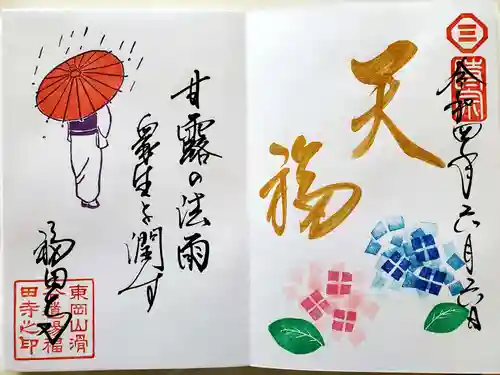 三
時宗
令和四年六月六日
天
福
甘露の法雨
衆生を潤す
福田寺
東岡山滑
谷道場福
田寺之印